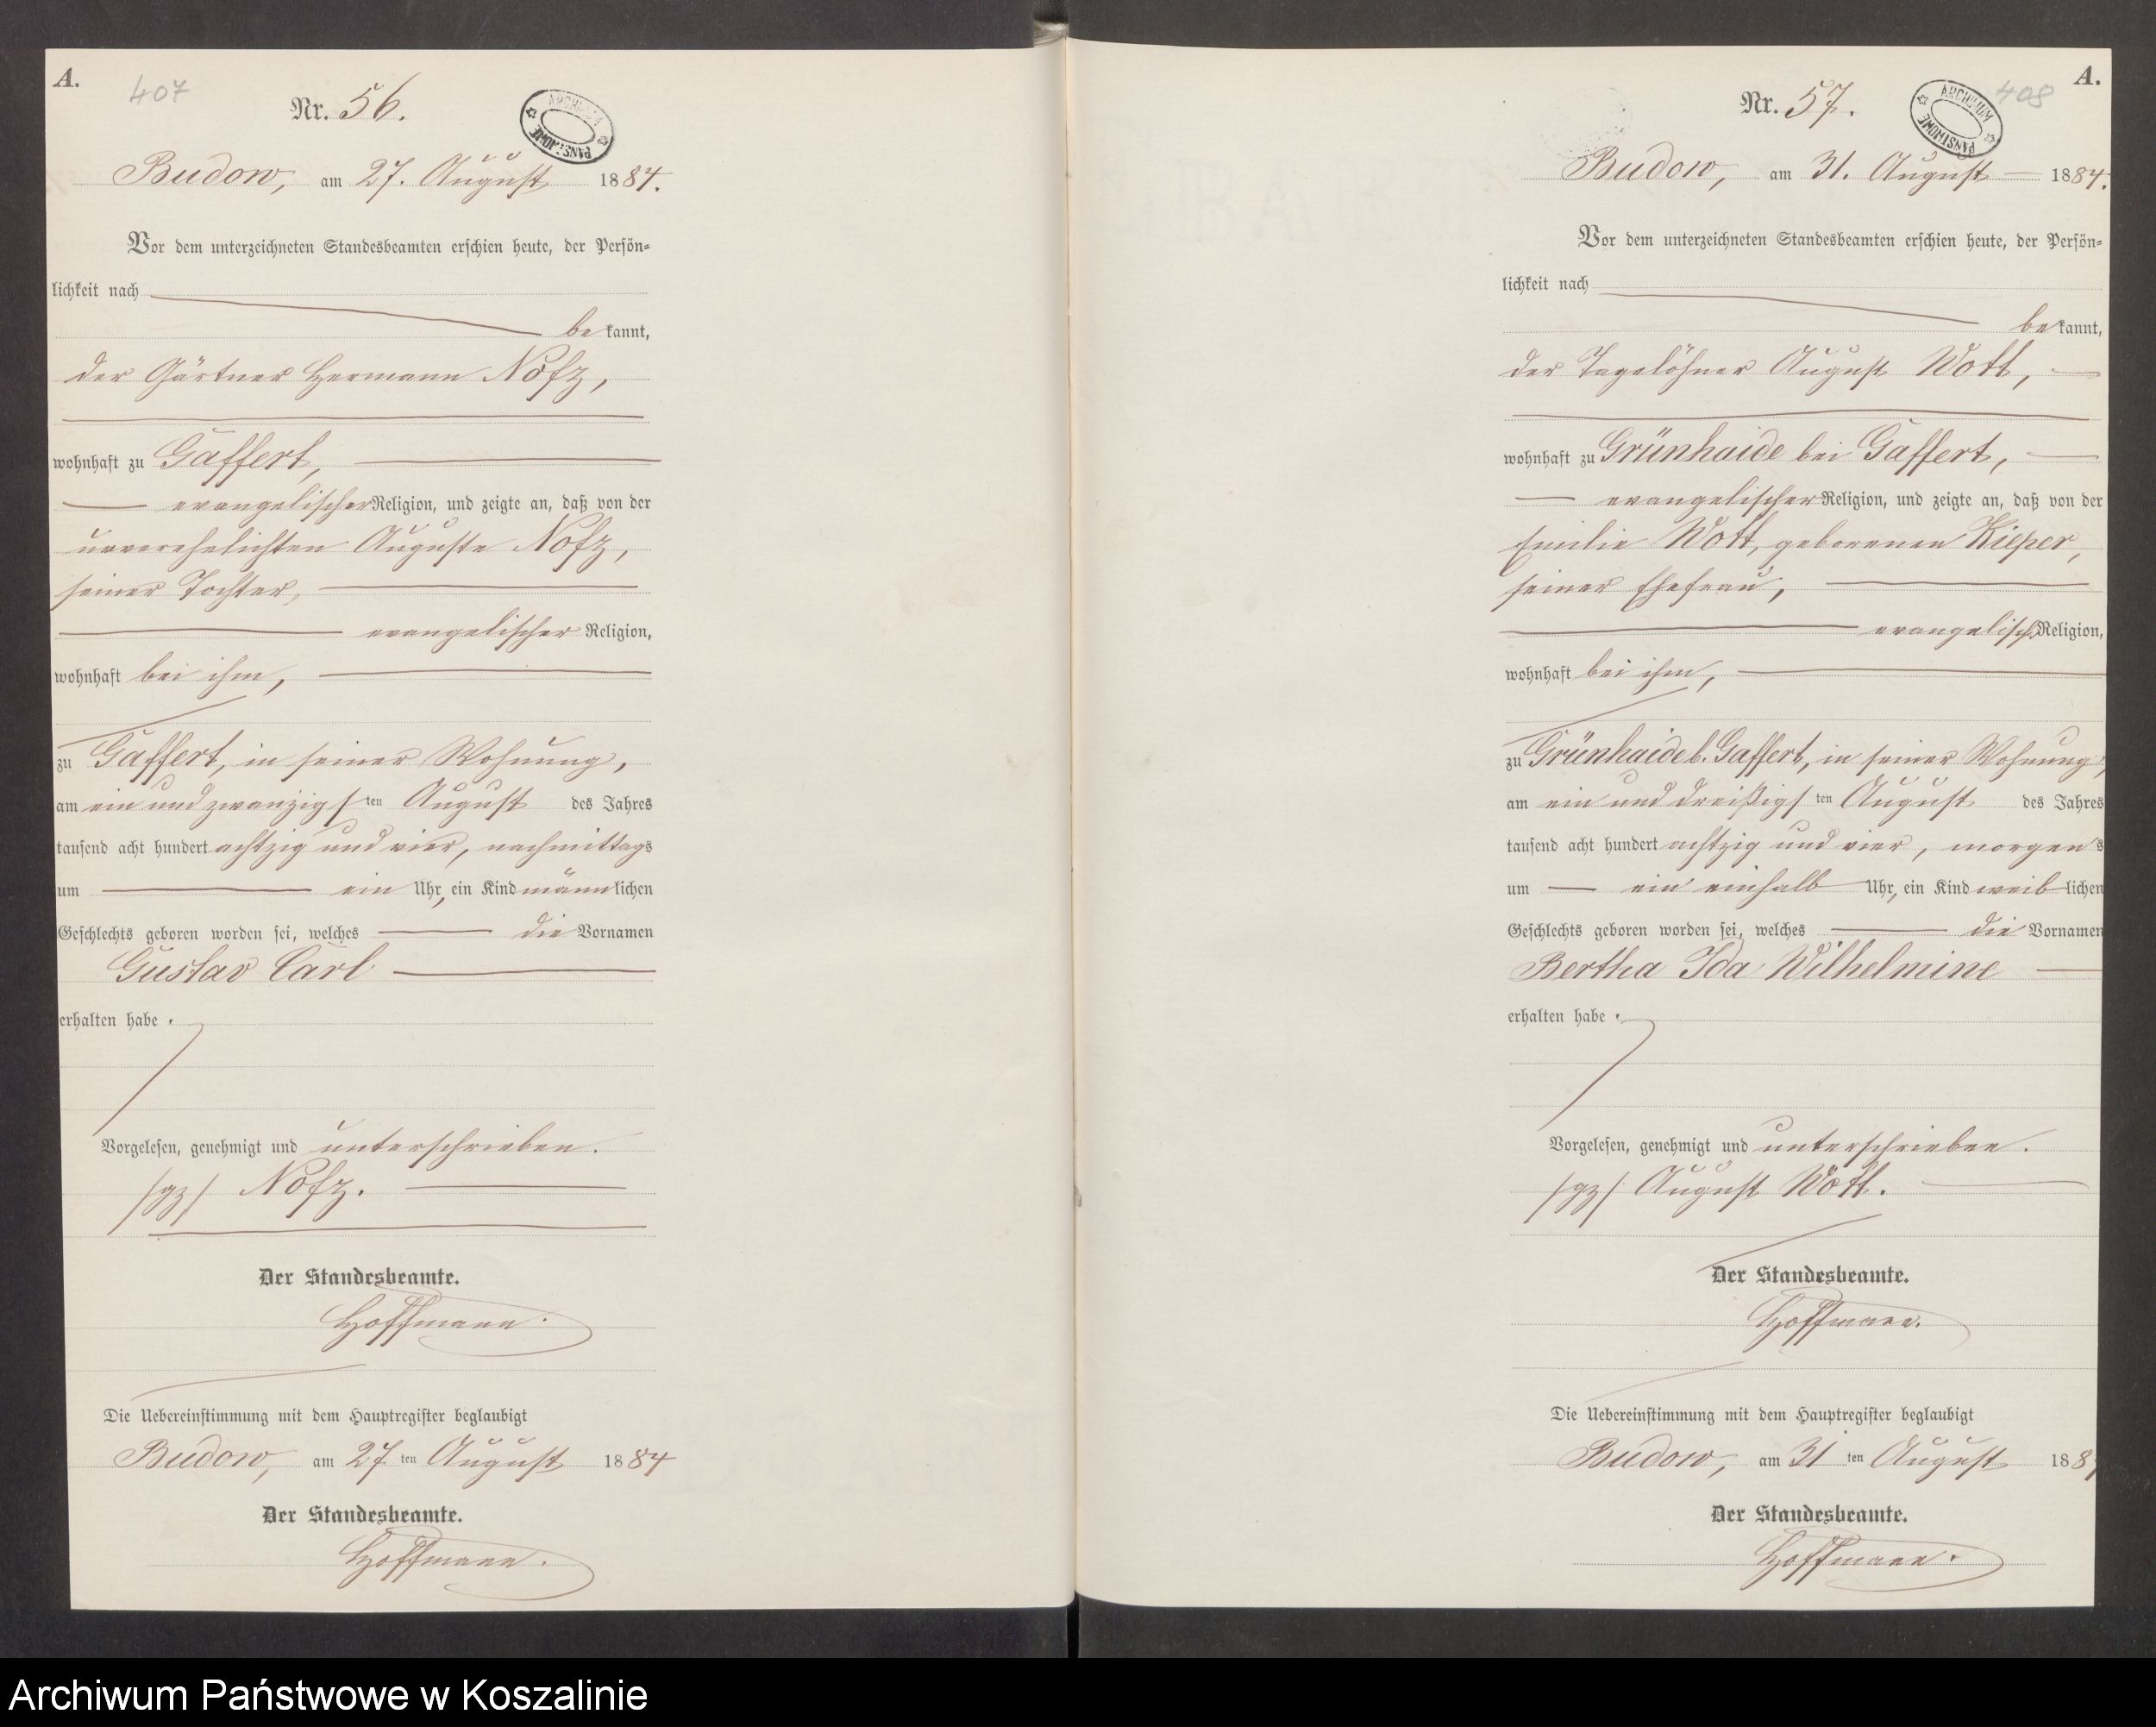 A.
407
Nr. 56.
ARCHIWUM PAŃSTWOWE
Budow, am 27. August 1884.
Vor dem unterzeichneten Standesbeamten erschien heute, der Persön-
lichkeit nach
be kannt,
der Gärtner Hermann Nofz,
wohnhaft zu Gaffert,
evangelischer Religion, und zeigte an, daß von der
unverehelichten Auguste Nofz,
seiner Tochter,
evangelischer Religion,
wohnhaft bei ihm,
zu Gaffert, in seiner Wohnung,
am ein und zwanzigsten August des Jahres
tausend acht hundert achtzig und vier, nachmittags
um ein Uhr, ein Kind männlichen
Geschlechts geboren worden sei, welches die Vornamen
Gustav Carl
erhalten habe.
Vorgelesen, genehmigt und unterschrieben.
/gz/ Nofz.
Der Standesbeamte.
Hoffmann.
Die Uebereinstimmung mit dem Hauptregister beglaubigt
Budow, am 27 ten August 1884
Der Standesbeamte.
Hoffmann.
A.
408
Nr. 57.
ARCHIWUM PAŃSTWOWE
Budow, am 31. August 1884.
Vor dem unterzeichneten Standesbeamten erschien heute, der Persön-
lichkeit nach
be kannt,
der Tagelöhner August Wott,
wohnhaft zu Grünhaide bei Gaffert,
evangelischer Religion, und zeigte an, daß von der
Emilie Wott, geborenen Kieper,
seiner Ehefrau,
evangelisch. Religion,
wohnhaft bei ihm,
zu Grünhaide b. Gaffert, in seiner Wohnung,
am ein und dreißigsten August des Jahres
tausend acht hundert achtzig und vier, morgens
um ein einhalb Uhr, ein Kind weiblichen
Geschlechts geboren worden sei, welches die Vornamen
Bertha Ida Wilhelmine
erhalten habe.
Vorgelesen, genehmigt und unterschrieben.
/gz/ August Wott.
Der Standesbeamte.
Hoffmann.
Die Uebereinstimmung mit dem Hauptregister beglaubigt
Budow, am 31 ten August 188
Der Standesbeamte.
Hoffmann.
Archiwum Państwowe w Koszalinie